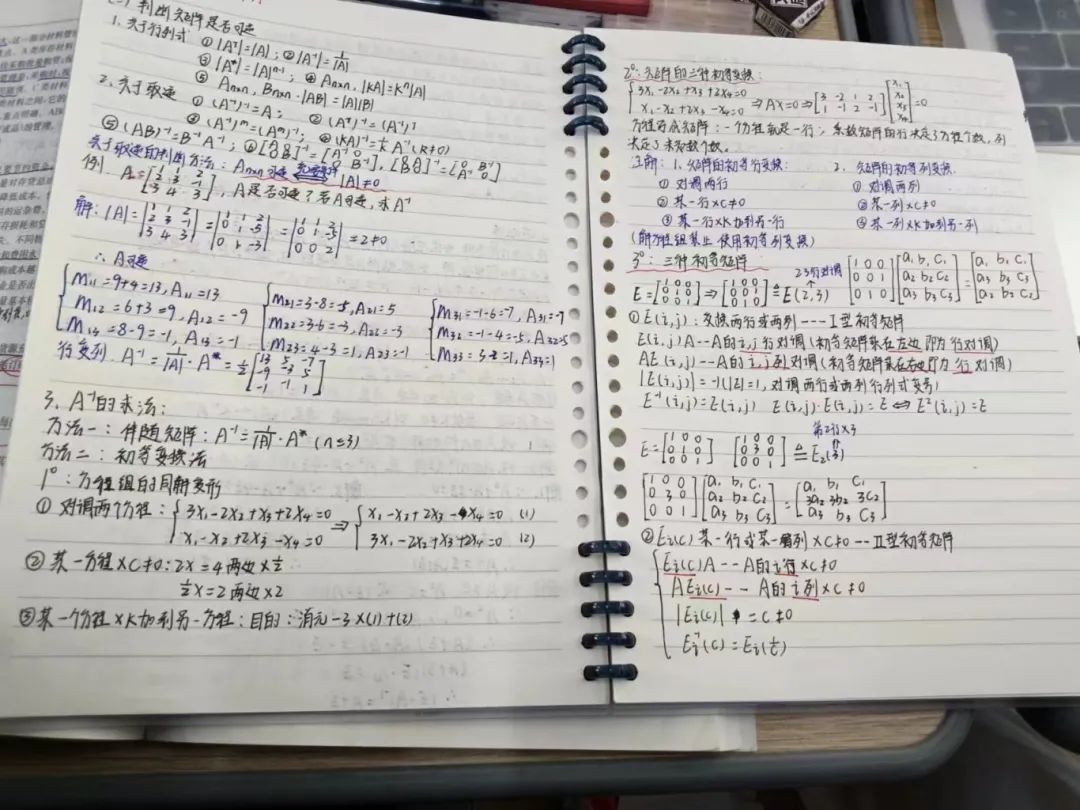 (一) 判断矩阵是否可逆
1. 关于行列式 ①|Aᵀ|=|A|; ②|A⁻¹|=1/|A|
③|A*|=|A|ⁿ⁻¹; ④ Anxn, |KA|=Kⁿ|A|
⑤ Anxn, Bnxn, |AB|=|A||B|
2. 关于取逆 ①(A⁻¹)⁻¹=A; ②(Aᵀ)⁻¹=(A⁻¹)ᵀ
③(A⁻¹)ᵐ=(Aᵐ)⁻¹; ④(KA)⁻¹=1/K A⁻¹(K≠0)
⑤(AB)⁻¹=B⁻¹A⁻¹; ⑥[A 0; 0 B]⁻¹=[A⁻¹ 0; 0 B⁻¹], [0 A; B 0]⁻¹=[0 B⁻¹; A⁻¹ 0]
关于取逆的判断方法: Anxn可逆 |A|≠0
例. A=[1 1 2; 2 3 -1; 3 4 3], A是否可逆? 若A可逆, 求A⁻¹
解: |A|=|1 1 2; 2 3 -1; 3 4 3|=|1 1 2; 0 1 -5; 0 1 -3|=|1 1 2; 0 1 -5; 0 0 2|=2≠0
∴A可逆
M11=9+4=13, A11=13 M21=3-8=-5, A21=5 M31=-1-6=-7, A31=-7
M12=6+3=9, A12=-9 M22=3-6=-3, A22=-3 M32=-1-4=-5, A32=5
M13=8-9=-1, A13=-1 M23=4-3=1, A23=-1 M33=3-2=1, A33=1
行变列. A⁻¹=1/|A|·A*=1/2[13 5 -7; -9 -3 5; -1 -1 1]
3. A⁻¹的求法:
方法一: 伴随矩阵: A⁻¹=1/|A|·A* (n≤3)
方法二: 初等变换法
1°: 方程组的同解变形
① 对调两个方程: {3x₁-2x₂+x₃+2x₄=0 ⇒ {x₁-x₂+2x₃-x₄=0 (1)
x₁-x₂+2x₃-x₄=0 3x₁-2x₂+x₃+2x₄=0 (2)
② 某一方程×C≠0: 2x=4 两边×1/2
1/2x=2 两边×2
③ 某一个方程×K加到另一方程: 目的: 消元 -3×(1)+(2)
2°: 矩阵的三种初等变换:
{3x₁-2x₂+x₃+2x₄=0 ⇒AX=0⇒[3 -2 1 2; 1 -1 2 -1][x₁; x₂; x₃; x₄]=0
x₁-x₂+2x₃-x₄=0
方程写成矩阵: 一个方程就是一行; 系数矩阵的行决定了方程个数, 列
决定了未知数个数.
注解: 1. 矩阵的初等行变换: 2. 矩阵的初等列变换.
① 对调两行 ① 对调两列
② 某一行×C≠0 ② 某一列×C≠0
③ 某一行×K加到另一行 ③ 某一列×K加到另一列
(解方程组禁止使用初等列变换)
3°: 三种初等矩阵
2 3行对调
E=[1 0 0; 0 1 0; 0 0 1]⇒[1 0 0; 0 0 1; 0 1 0]≜E(2,3) [1 0 0; 0 0 1; 0 1 0][a₁ b₁ c₁; a₂ b₂ c₂; a₃ b₃ c₃]=[a₁ b₁ c₁; a₃ b₃ c₃; a₂ b₂ c₂]
① E(i,j): 变换两行或两列---I型初等矩阵
E(i,j)A--A的i,j行对调(初等矩阵乘在左边即为行对调)
AE(i,j)--A的i,j列对调(初等矩阵乘在右边即为行对调)
|E(i,j)|=-1(|E|=1, 对调两行或两列行列式变号)
E⁻¹(i,j)=E(i,j) E(i,j)·E(i,j)=E⇔E²(i,j)=E
第2行×3
E=[1 0 0; 0 1 0; 0 0 1] [1 0 0; 0 3 0; 0 0 1]≜E₂(3)
[1 0 0; 0 3 0; 0 0 1][a₁ b₁ c₁; a₂ b₂ c₂; a₃ b₃ c₃]=[a₁ b₁ c₁; 3a₂ 3b₂ 3c₂; a₃ b₃ c₃]
② Ei(c) 某一行或某一列×C≠0--II型初等矩阵
Ei(c)A--A的i行×C≠0
AEi(c)--A的i列×C≠0
|Ei(c)|=C≠0
Ei⁻¹(c)=Ei(1/c)